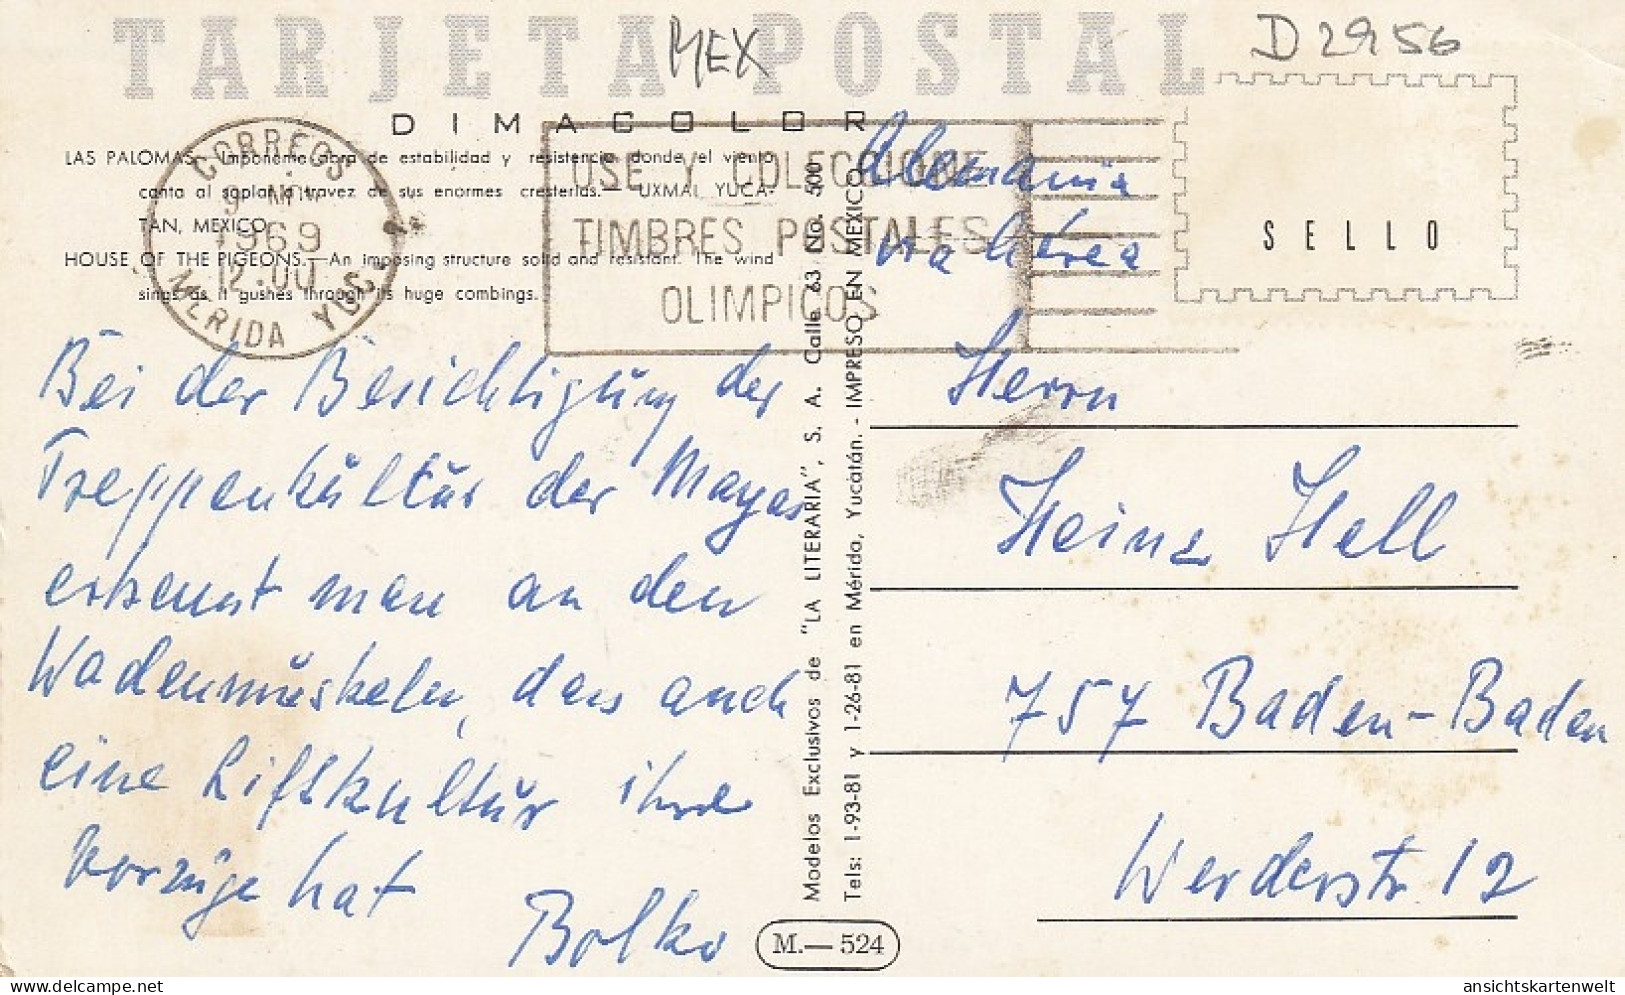 TARJETA POSTAL
MEX
D 2956
DIMACOLOR
LAS PALOMAS.—Imponente obra de estabilidad y resistencia donde el viento
canta al soplar a travez de sus enormes cresterias.— UXMAL YUCA-
TAN, MEXICO.
HOUSE OF THE PIGEONS.—An imposing structure solid and resistant. The wind
sings as it gushes through its huge combings.
CORREOS
1969
12.00
MERIDA YUC.
USE Y COLECCIONE
TIMBRES POSTALES
OLIMPICOS
Alemania
via Aérea
SELLO
Bei der Besichtigung der
Treppenkultur der Mayas
erkennt man an den
Wadenmuskeln, dass auch
eine Liftkultur ihre
Vorzüge hat
Bolko
Modelos Exclusivos de "LA LITERARIA", S. A. Calle 63 No. 500
Tels: 1-93-81 y 1-26-81 en Mérida, Yucatán. - IMPRESO EN MEXICO
Herrn
Heinz Hell
757 Baden-Baden
Werderstr 12
M.— 524
ansichtskartenwelt